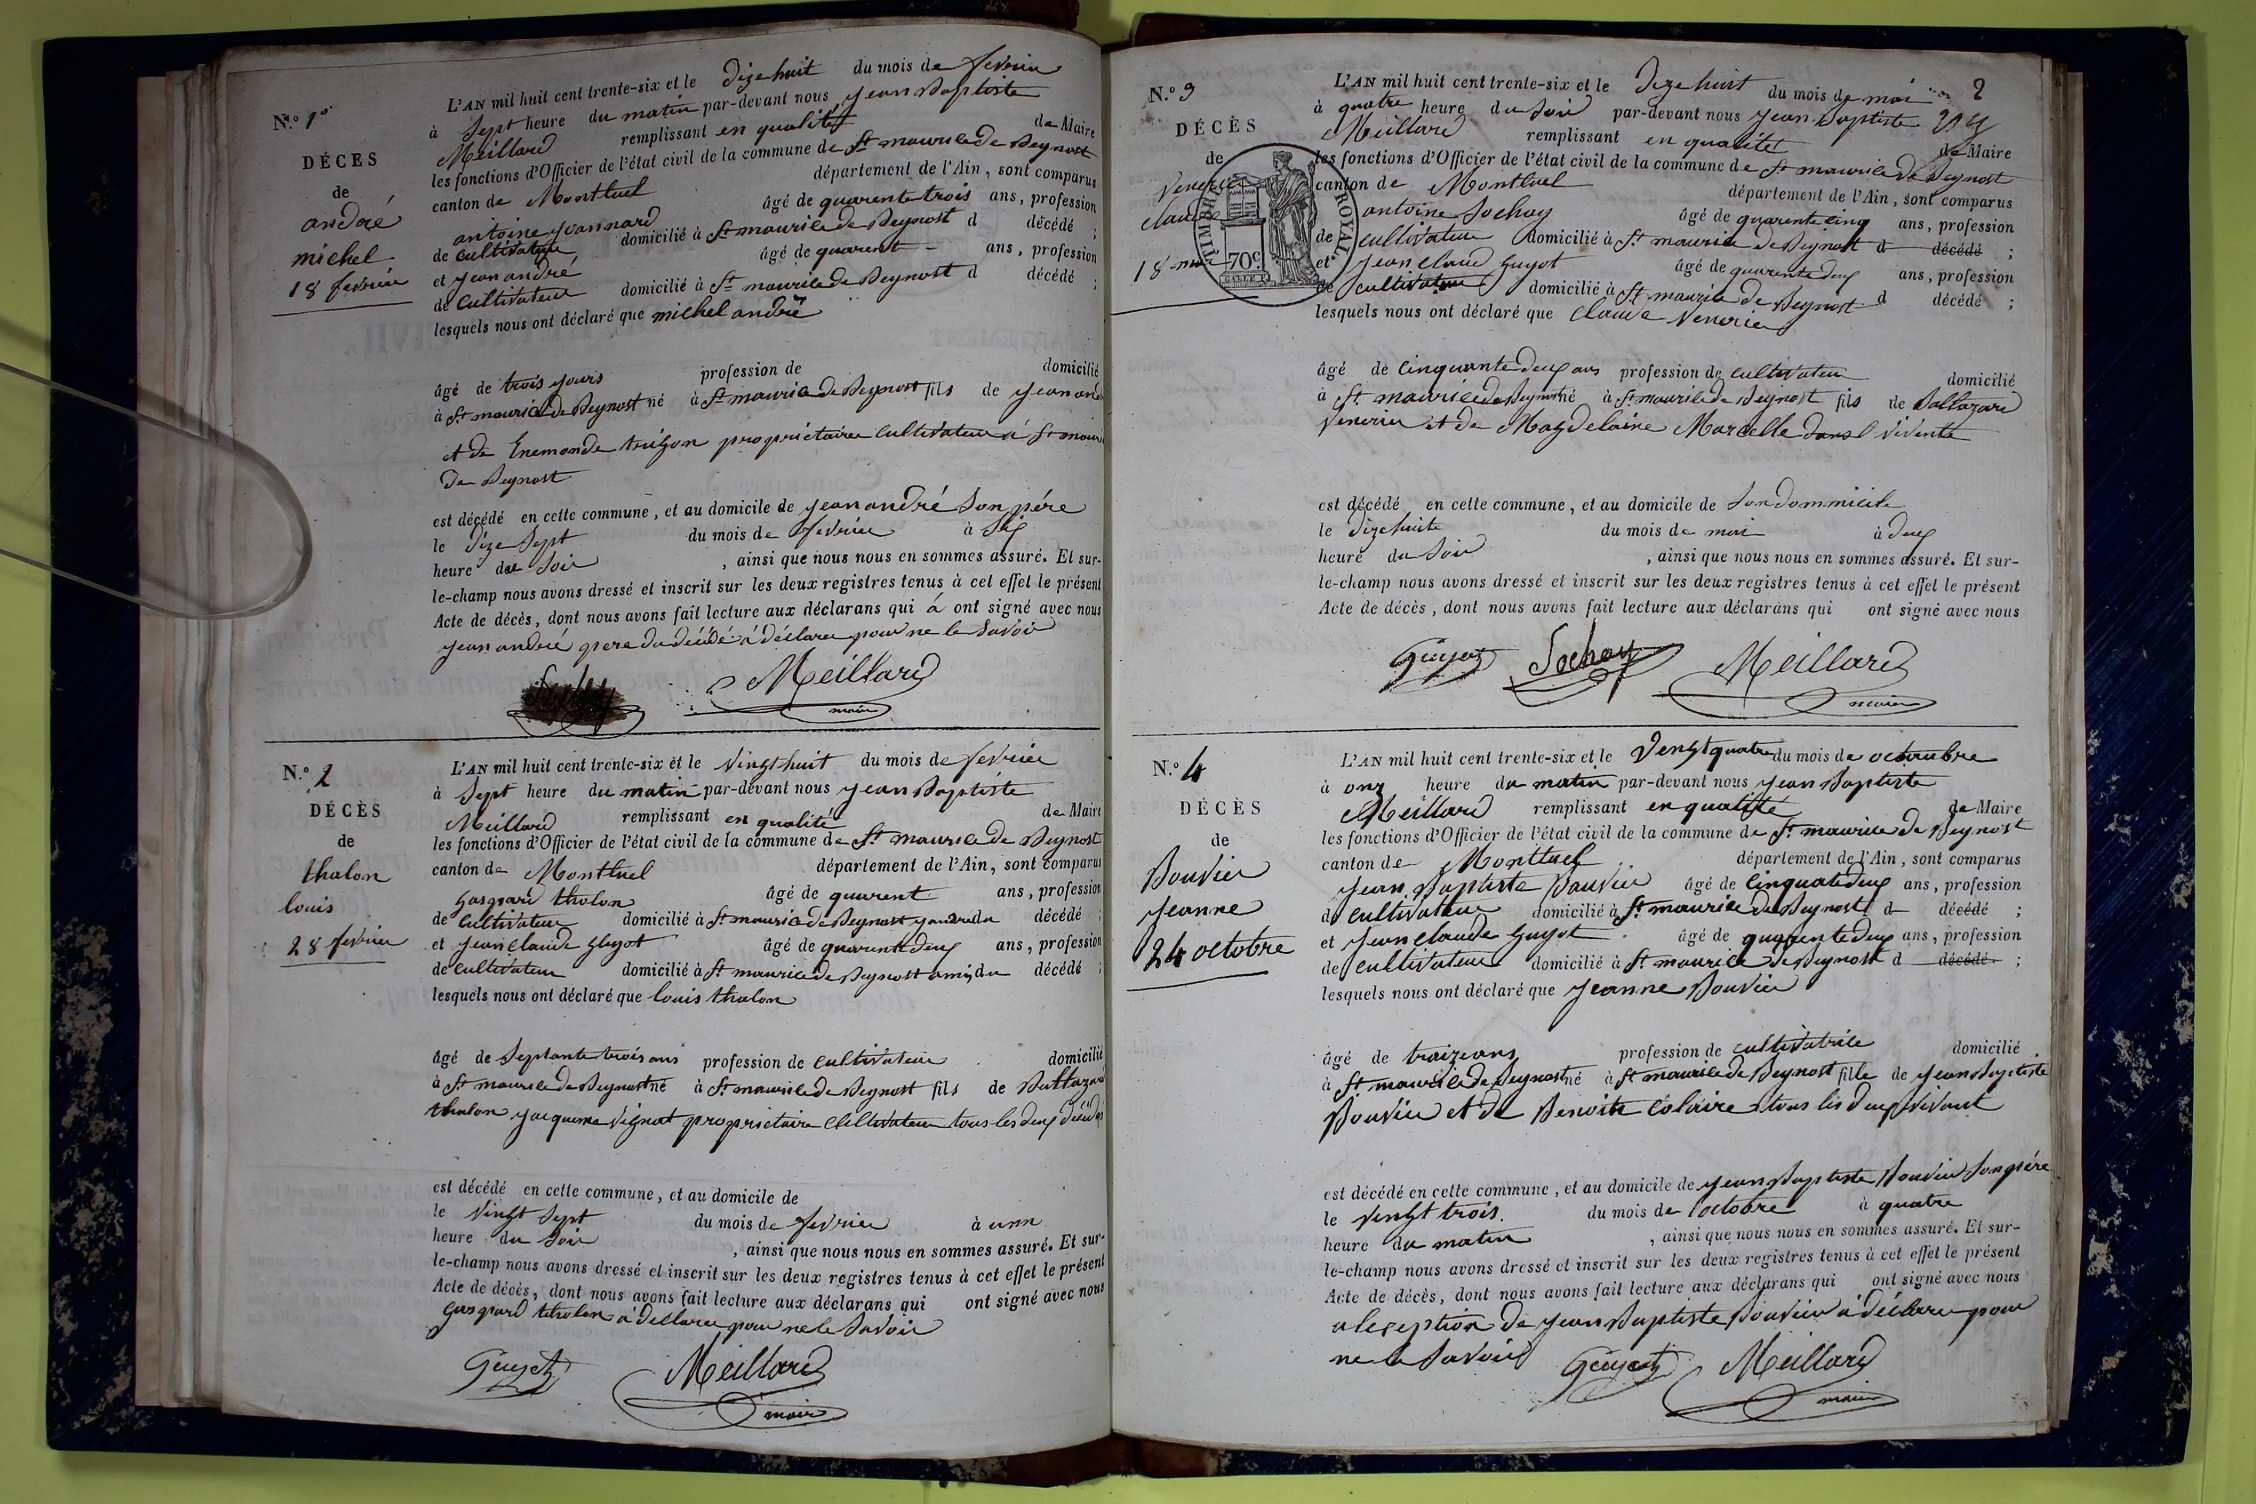 N.º 1er
DÉCÈS
de
andré
michel
18 fevrier
L'AN mil huit cent trente-six et le dize huit du mois de fevrier
à Sept heure du matin par-devant nous jean Baptiste
Meillard remplissant en qualité de Maire
les fonctions d'Officier de l'état civil de la commune de St maurice de Beynost
canton de Montluel département de l'Ain, sont comparus
antoine jeannard âgé de quarente trois ans, profession
de cultivateur domicilié à St maurice de Beynost d décédé ;
et jean andré âgé de quarent ans, profession
de cultivateur domicilié à St maurice de Beynost d décédé ;
lesquels nous ont déclaré que michel andré
âgé de trois jours profession de domicilié
à St maurice de Beynost né à St maurice de Beynost fils de jean andré
et de Enemonde proprietaires cultivateur à St mauri
de Beynost
est décédé en cette commune, et au domicile de jean andré Son pére
le dize Sept du mois de fevrier à Six
heure du Soir , ainsi que nous nous en sommes assuré. Et sur-
le-champ nous avons dressé et inscrit sur les deux registres tenus à cet effet le présent
Acte de décès, dont nous avons fait lecture aux déclarans qui á ont signé avec nous
jean andré pere du décédé á déclaré pour ne le Savoir
Meillard
maire
N.º 2
DÉCÈS
de
tholon
louis
28 fevrier
L'AN mil huit cent trente-six et le vingt huit du mois de fevrier
à Sept heure du matin par-devant nous jean Baptiste
Meillard remplissant en qualité de Maire
les fonctions d'Officier de l'état civil de la commune de St maurice de Beynost
canton de Montluel département de l'Ain, sont comparus
gaspard tholon âgé de quarent ans, profession
de cultivateur domicilié à St maurice de Beynost du décédé ;
et jean claude guyot âgé de quarente deux ans, profession
de cultivateur domicilié à St maurice de Beynost ami du décédé ;
lesquels nous ont déclaré que louis tholon
âgé de Septante trois ans profession de cultivateur domicilié
à St maurice de Beynost né à St maurice de Beynost fils de Baltazard
tholon jacquema vignat proprietaire cultivateur tous les deux décédés
est décédé en cette commune, et au domicile de
le vingt Sept du mois de fevrier à unn
heure du Soir , ainsi que nous nous en sommes assuré. Et sur-
le-champ nous avons dressé et inscrit sur les deux registres tenus à cet effet le présent
Acte de décès, dont nous avons fait lecture aux déclarans qui ont signé avec nous
gaspard tholon á déllaré pour ne le Savoir
Guyot Meillard
maire
N.º 3
DÉCÈS
de
Venerier
claude
18 mai
TIMBRE ROYAL
70c
2
L'AN mil huit cent trente-six et le dize huit du mois de mai
à quatre heure du Soir par-devant nous jean Baptiste
Meillard remplissant en qualité de Maire
les fonctions d'Officier de l'état civil de la commune de St maurice de Beynost
canton de Montluel département de l'Ain, sont comparus
antoine Sochay âgé de quarente cinq ans, profession
de cultivateur domicilié à St maurice de Beynost d décédé ;
et jean claud guyot âgé de quarente deux ans, profession
de cultivateur domicilié à St maurice de Beynost d décédé ;
lesquels nous ont déclaré que claude Venerier
âgé de cinquante deux ans profession de cultivateur domicilié
à St maurice de Beynost né à St maurice de Beynost fils de Baltazard
Venerier et de Magdelaine Marcelle vivente
est décédé en cette commune, et au domicile de Son dommicile
le dize huite du mois de mai à deux
heure du Soir , ainsi que nous nous en sommes assuré. Et sur-
le-champ nous avons dressé et inscrit sur les deux registres tenus à cet effet le présent
Acte de décès, dont nous avons fait lecture aux déclarans qui ont signé avec nous
Guyot Sochay Meillard
maire
N.º 4
DÉCÈS
de
Bouvier
jeanne
24 octobre
L'AN mil huit cent trente-six et le vengt quatre du mois de octoubre
à onz heure du matin par-devant nous jean Baptiste
Meillard remplissant en qualité de Maire
les fonctions d'Officier de l'état civil de la commune de St maurice de Beynost
canton de Montluel département de l'Ain, sont comparus
jean Baptiste Bouvier âgé de cinquate deux ans, profession
de cultivateur domicilié à St maurice de Beynost d décédé ;
et jean claude guyot âgé de quarente deux ans, profession
de cultivateur domicilié à St maurice de Beynost d décédé ;
lesquels nous ont déclaré que jeanne Bouvier
âgé de traize ans profession de cultivatrice domicilié
à St maurice de Beynost né à St maurice de Beynost fille de jean Baptiste
Bouvier et de Benoite Colaire tous les deux vivant
est décédé en cette commune, et au domicile de jean Baptiste Bouvier Son pére
le vengt trois du mois de octobre à quatre
heure du matin , ainsi que nous nous en sommes assuré. Et sur-
le-champ nous avons dressé et inscrit sur les deux registres tenus à cet effet le présent
Acte de décès, dont nous avons fait lecture aux déclarans qui ont signé avec nous
a lexeption de jean Baptiste Bouvier á déclaré pour
ne le Savoir Guyot Meillard
maire